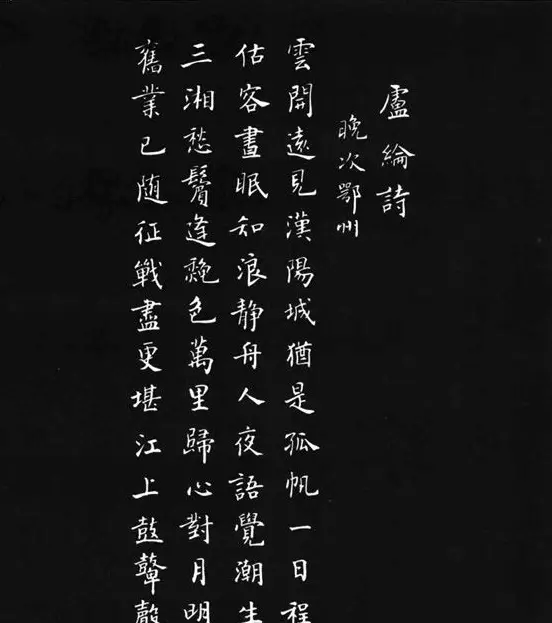 盧綸詩
晚次鄂州
雲開遠見漢陽城猶是孤帆一日程
估客晝眠知浪靜舟人夜語覺潮生
三湘愁鬢逢秋色萬里歸心對月明
舊業已随征戰盡更堪江上鼓鼙聲